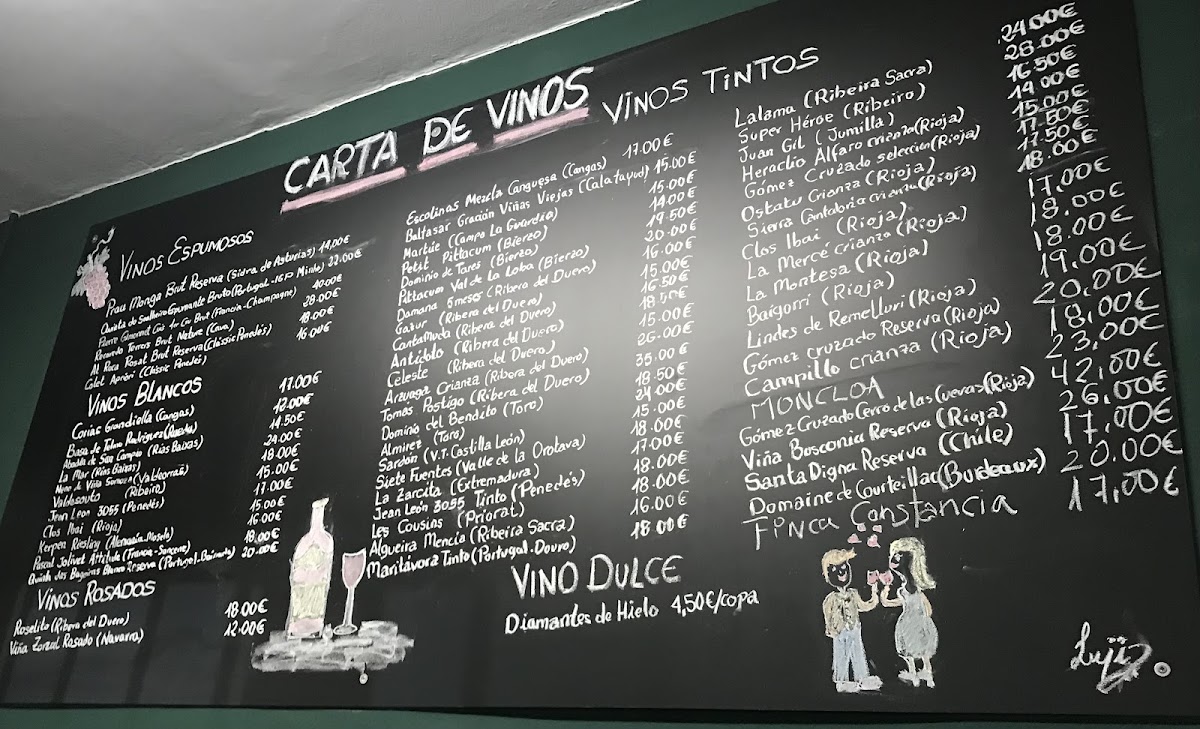 CARTA DE VINOS
VINOS ESPUMOSOS
Prau Monga Brut Reserva (Sidra de Asturias) 14,00€
Quinta do Soalheiro Espumante Bruto (Portugal-IGP Minho) 22.00€
Pierre Gimonnet Cuis 1er Cru Brut (Francia-Champagne) 40.00€
Recaredo Terrers Brut Nature (Cava) 28.00€
At Roca Rosat Brut Reserva (Clàssic Penedés) 18.00€
Colet Apròri (Clàssic Penedés) 16.00€
VINOS BLANCOS
Corias Guandiella (Cangas) 17.00€
Basa de Telmo Rodríguez (Rueda) 12.00€
Abadía de San Campio (Rías Baixas) 14.50€
La Mar (Rías Baixas) 24.00€
Nora de Viña Somoza (Valdeorras) 18.00€
Valdesouto (Ribeiro) 15.00€
Jean Leon 3055 (Penedés) 17.00€
Clos Ibai (Rioja) 15.00€
Kerpen Riesling (Alemania-Mosela) 16.00€
Pascal Jolivet Attitude (Francia-Sancerre) 18.00€
Quinta das Bageiras Blanco Reserva (Portugal-Bairrada) 20.00€
VINOS ROSADOS
Roselito (Ribera del Duero) 18.00€
Viña Zorzal Rosado (Navarra) 12.00€
VINOS TINTOS
Escolinas Mezcla Canguesa (Cangas) 17.00€
Baltasar Gracián Viñas Viejas (Calatayud) 15.00€
Martúe (Campo La Guardia) 15.00€
Petit Pittacum (Bierzo) 14.00€
Dominio de Tares (Bierzo) 19.50€
Pittacum Val de la Loba (Bierzo) 20.00€
Damana 5 meses (Ribera del Duero) 16.00€
Gatur (Ribera del Duero) 15.00€
CantaMuda (Ribera del Duero) 16.50€
Antídoto (Ribera del Duero) 18.50€
Celeste (Ribera del Duero) 15.00€
Arzuaga Crianza (Ribera del Duero) 26.00€
Tomás Postigo (Ribera del Duero) 35.00€
Dominio del Bendito (Toro) 18.50€
Almirez (Toro) 24.00€
Sardón (V.T. Castilla León) 15.00€
Siete Fuentes (Valle de la Orotava) 18.00€
La Zarcita (Extremadura) 17.00€
Jean León 3055 Tinto (Penedés) 18.00€
Les Cousins (Priorat) 18.00€
Algueira Mencía (Ribeira Sacra) 16.00€
Maritávora Tinto (Portugal-Douro) 18.00€
VINO DULCE
Diamantes de Hielo 4,50€/copa
Lalama (Ribeira Sacra) 24.00€
Super Héroe (Ribeiro) 28.00€
Juan Gil (Jumilla) 16.50€
Heraclio Alfaro crianza (Rioja) 14.00€
Gómez Cruzado selección (Rioja) 15.00€
Ostatu Crianza (Rioja) 17.50€
Sierra Cantabria crianza (Rioja) 17.50€
Clos Ibai (Rioja) 18.00€
La Mercé crianza (Rioja) 17,00€
La Montesa (Rioja) 18.00€
Baigorri (Rioja) 18.00€
Lindes de Remelluri (Rioja) 19.00€
Gómez cruzado Reserva (Rioja) 20.00€
Campillo crianza (Rioja) 18,00€
MONCLOA 23,00€
Gómez Cruzado Cerro de las Cuevas (Rioja) 42,00€
Viña Bosconia Reserva (Rioja) 26.00€
Santa Digna Reserva (Chile) 17,00€
Domaine de Courteillac (Burdeaux) 20.00€
Finca Constancia 17,00€
Luji